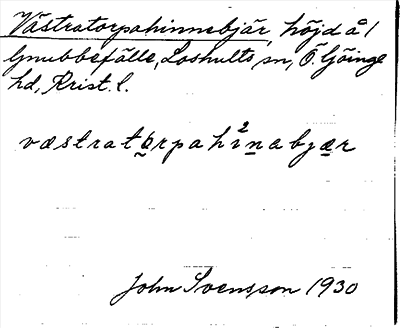 Västratorpahinnebjär, höjd å 1
Gnubbefälle, Loshults sn, Ö. Göinge
hd, Krist. l.
væstratɑrpahı²nabjær
John Svensson 1930